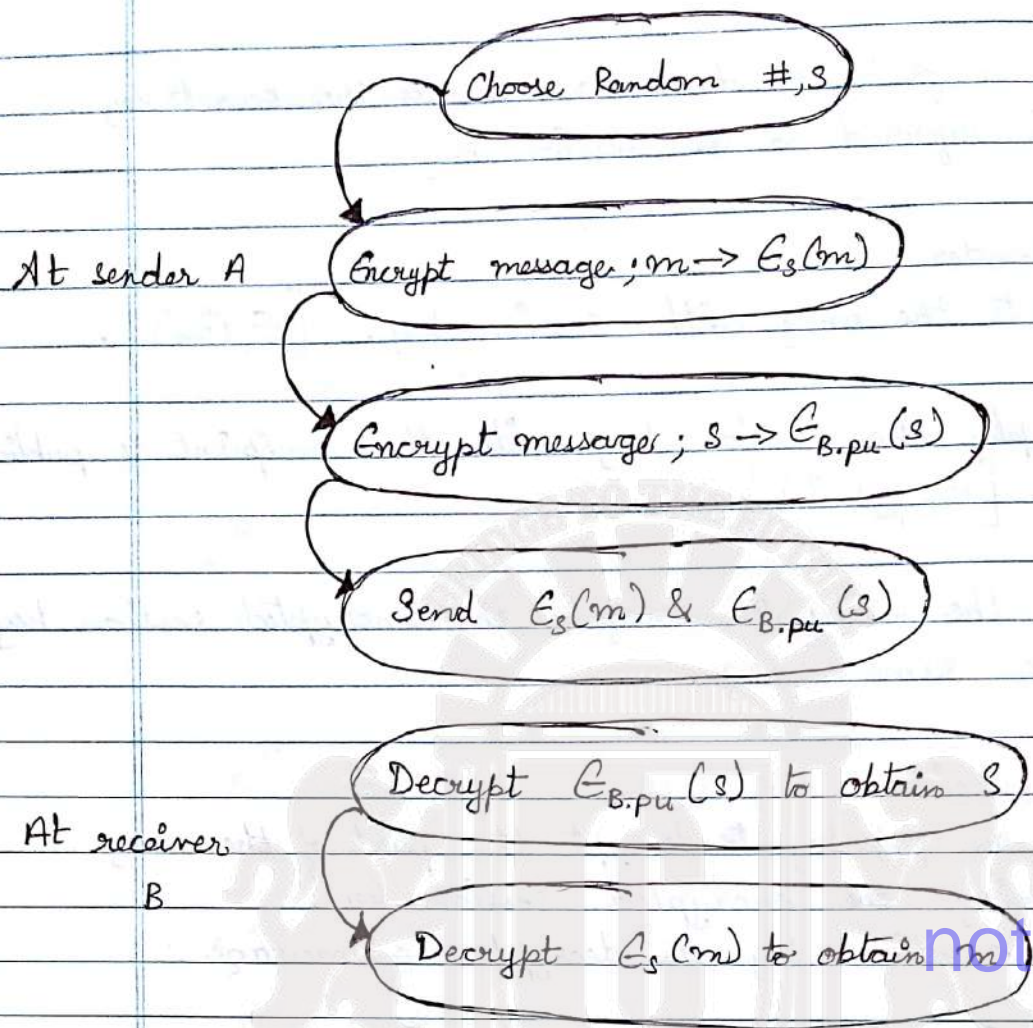 Choose Random #, s
At sender A
Encrypt message ; m → E_s(m)
Encrypt message ; s → E_B.pu (s)
Send E_s(m) & E_B.pu (s)
Decrypt E_B.pu (s) to obtain s
At receiver
B
Decrypt E_s (m) to obtain m
not